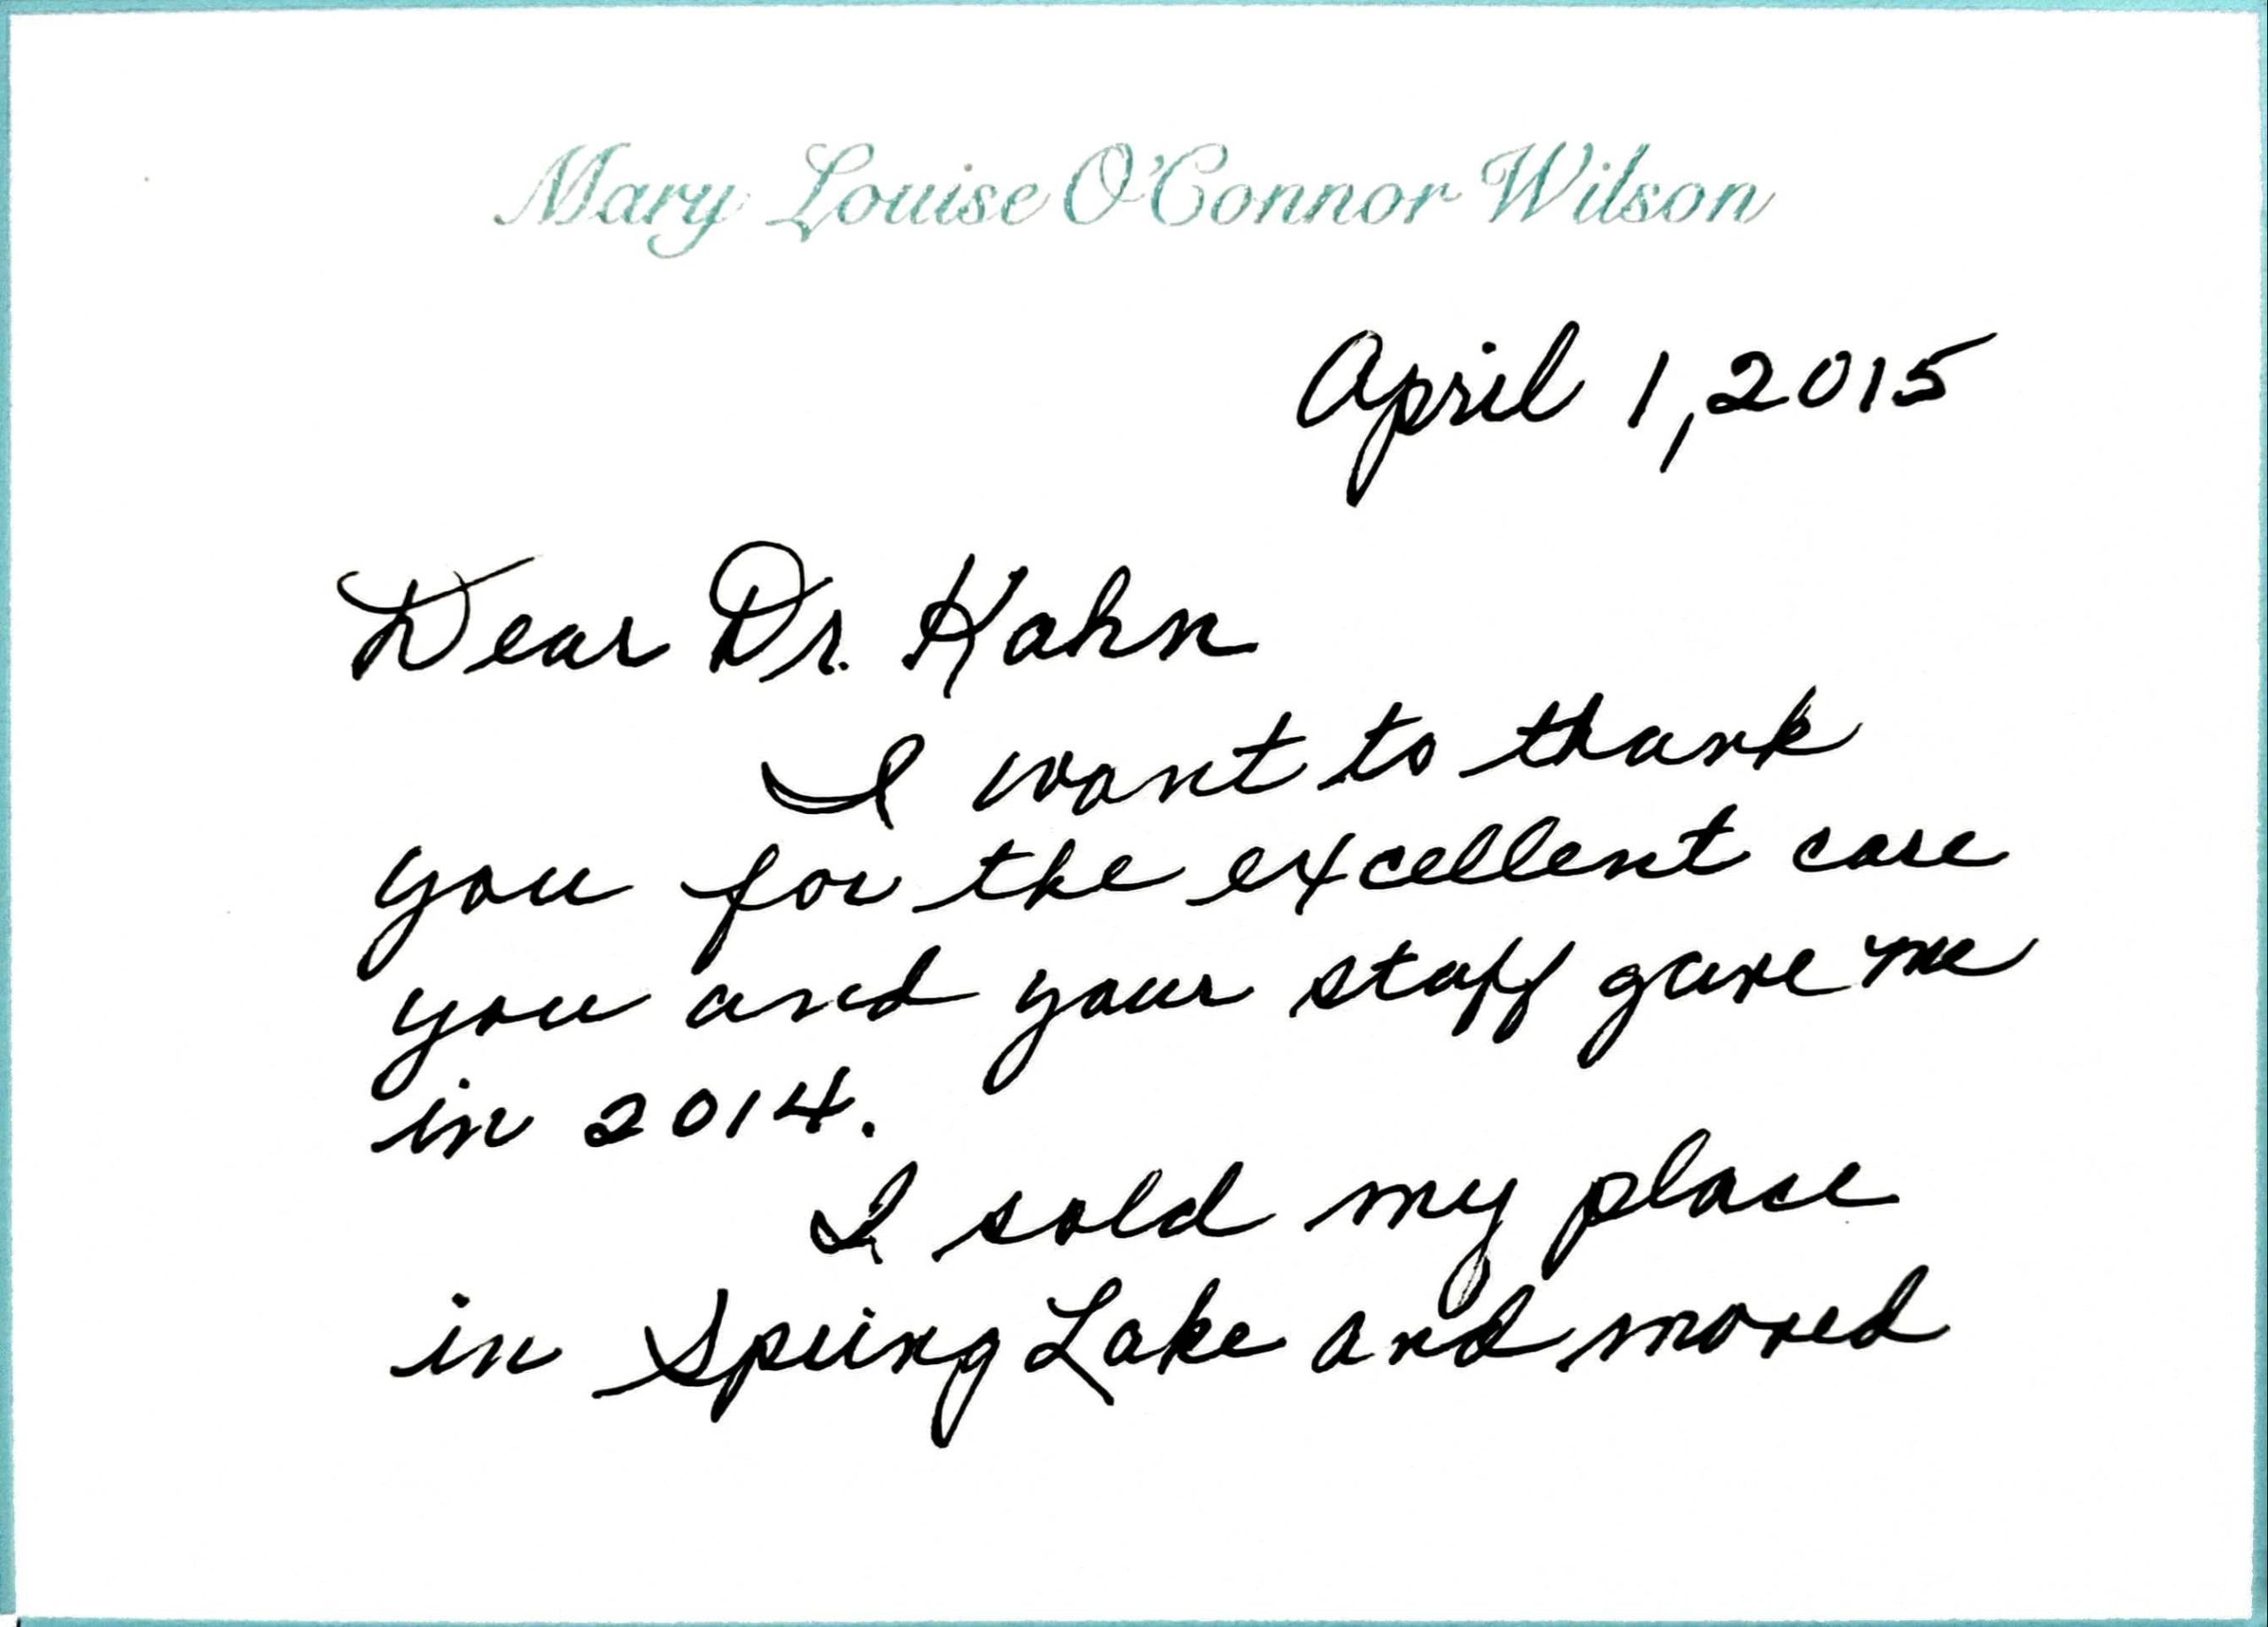 Mary Louise O'Connor Wilson
April 1, 2015
Dear Dr. Kahn
I want to thank
you for the excellent care
you and your staff gave me
in 2014.
I sold my place
in Spring Lake and moved